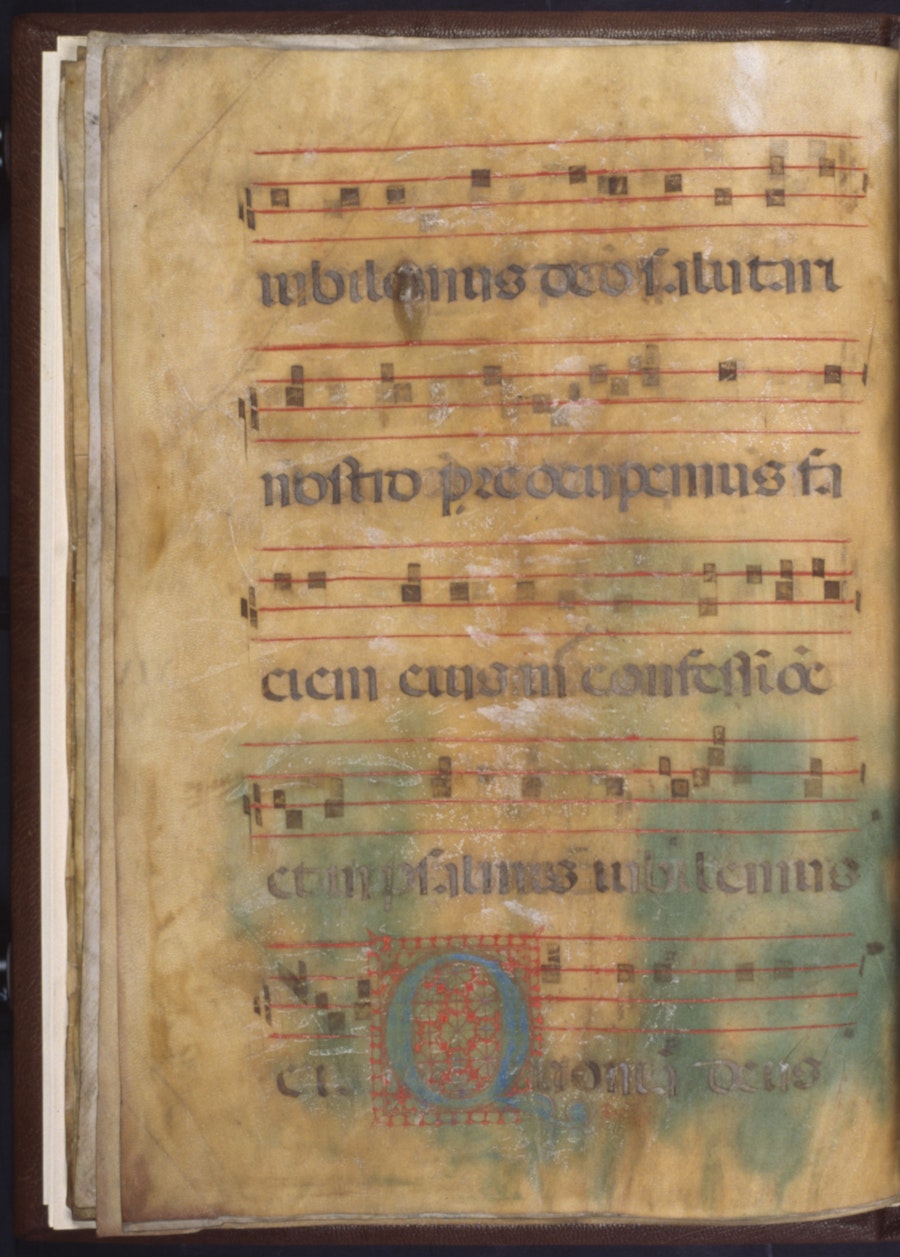 iubilemus deo salutari
nostro preocupemus fa
ciem eius in confessiõe
et in psalmis iubilemus
ei. Quoniã deus